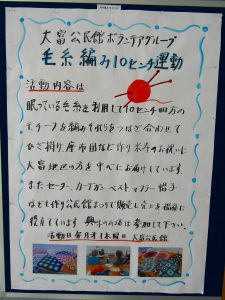 大富公民館ボランティアグループ
毛糸編み10センチ運動
活動内容は
眠っている毛糸を利用して10センチ四方の
モチーフを編みそれらをつなぎ合わせて
ひざ掛け、座布団など作り
大富地区の方を中心にお届けしています
また セーター、カーデガン、ベスト マフラー 帽子
なども作り公民館まつりで販売し売上を福祉に
役立てています 興味の有る方は参加して下さい。
活動日 毎月第1木曜日 大富公民館